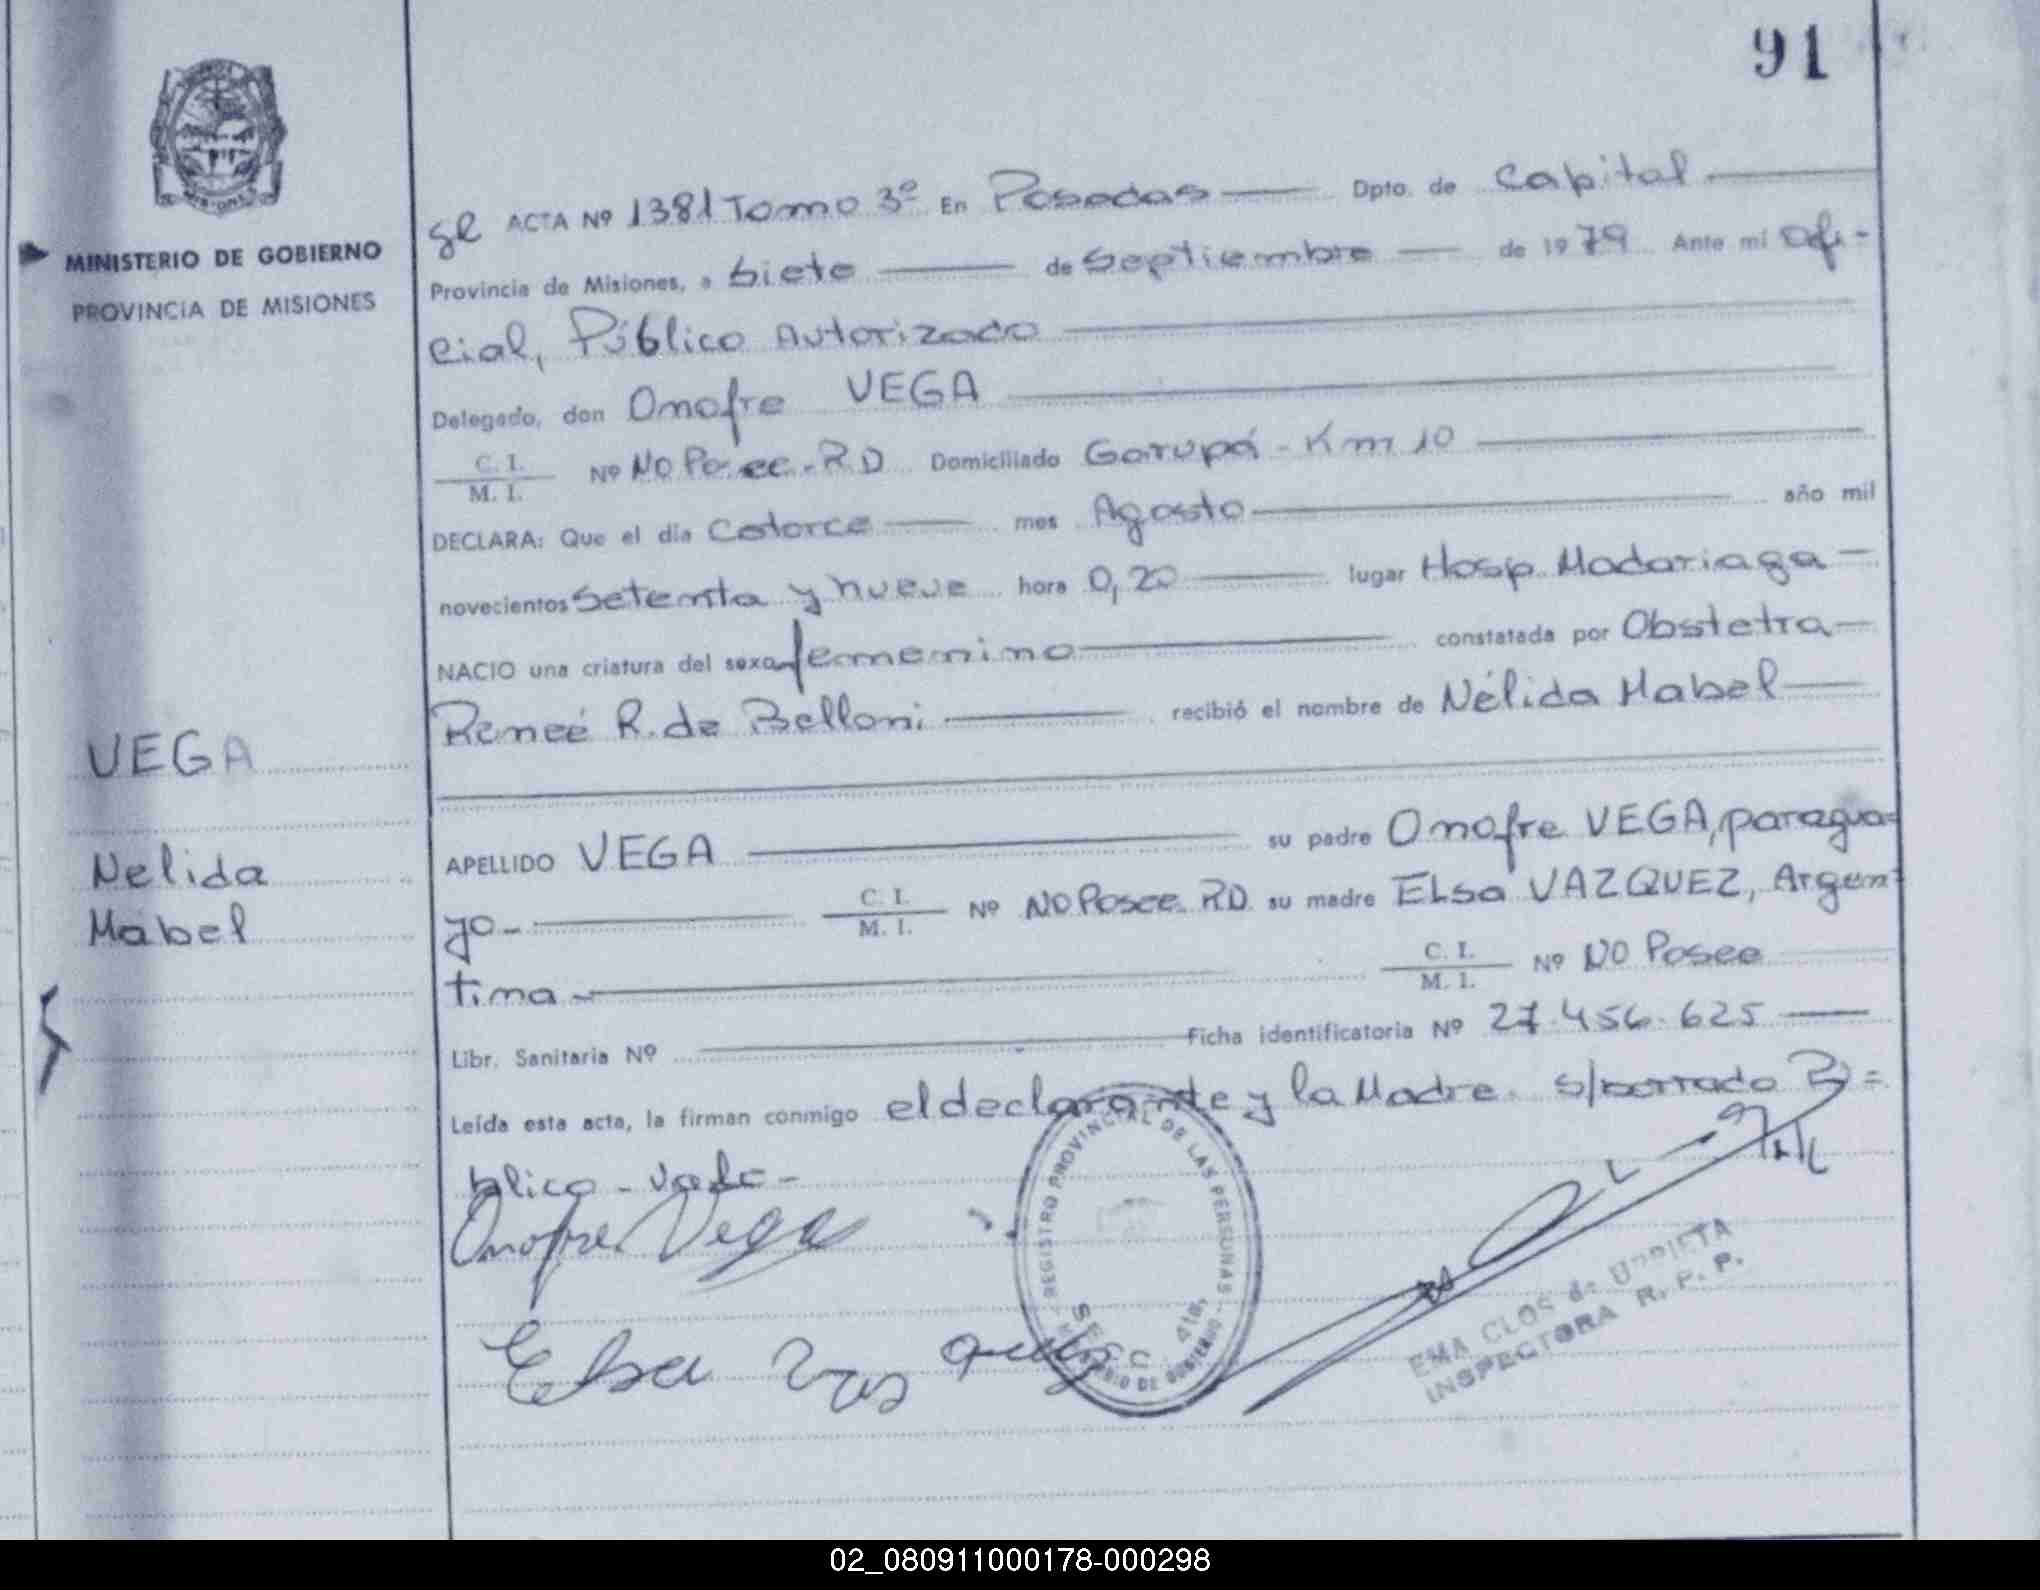 91
MINISTERIO DE GOBIERNO
PROVINCIA DE MISIONES
VEGA
Nelida
Mabel
ACTA Nº 1381 Tomo 3º En Posadas Dpto. de Capital
Provincia de Misiones, a Siete de Septiembre de 1979 Ante mi Ofi-
cial, Público Autorizado
Delegado, don Onofre VEGA
C. I.
M. I. Nº NO Posee - R D Domiciliado Garupá - Km 10
DECLARA: Que el día Catorce mes Agosto año mil
novecientos Setenta y nueve hora 0,20 lugar Hosp. Madariaga -
NACIO una criatura del sexo femenino constatada por Obstetra -
Reneé R. de Belloni recibió el nombre de Nélida Mabel
APELLIDO VEGA su padre Onofre VEGA, paragua=
yo - C. I.
M. I. Nº NO Posee RD su madre ELsa VAZQUEZ, Argen=
tina - C. I.
M. I. Nº NO Posee
Libr. Sanitaria Nº Ficha identificatoria Nº 27.456.625
Leída esta acta, la firman conmigo el declarante y la Madre. s/borrado Pú=
blico - vale -
Onofre Vega
Elsa Vasquez
REGISTRO PROVINCIAL DE LAS PERSONAS
SECC. 4ta.
MINISTERIO DE GOBIERNO
EMA CLOS de URRIETA
INSPECTORA R. P. P.
02_080911000178-000298